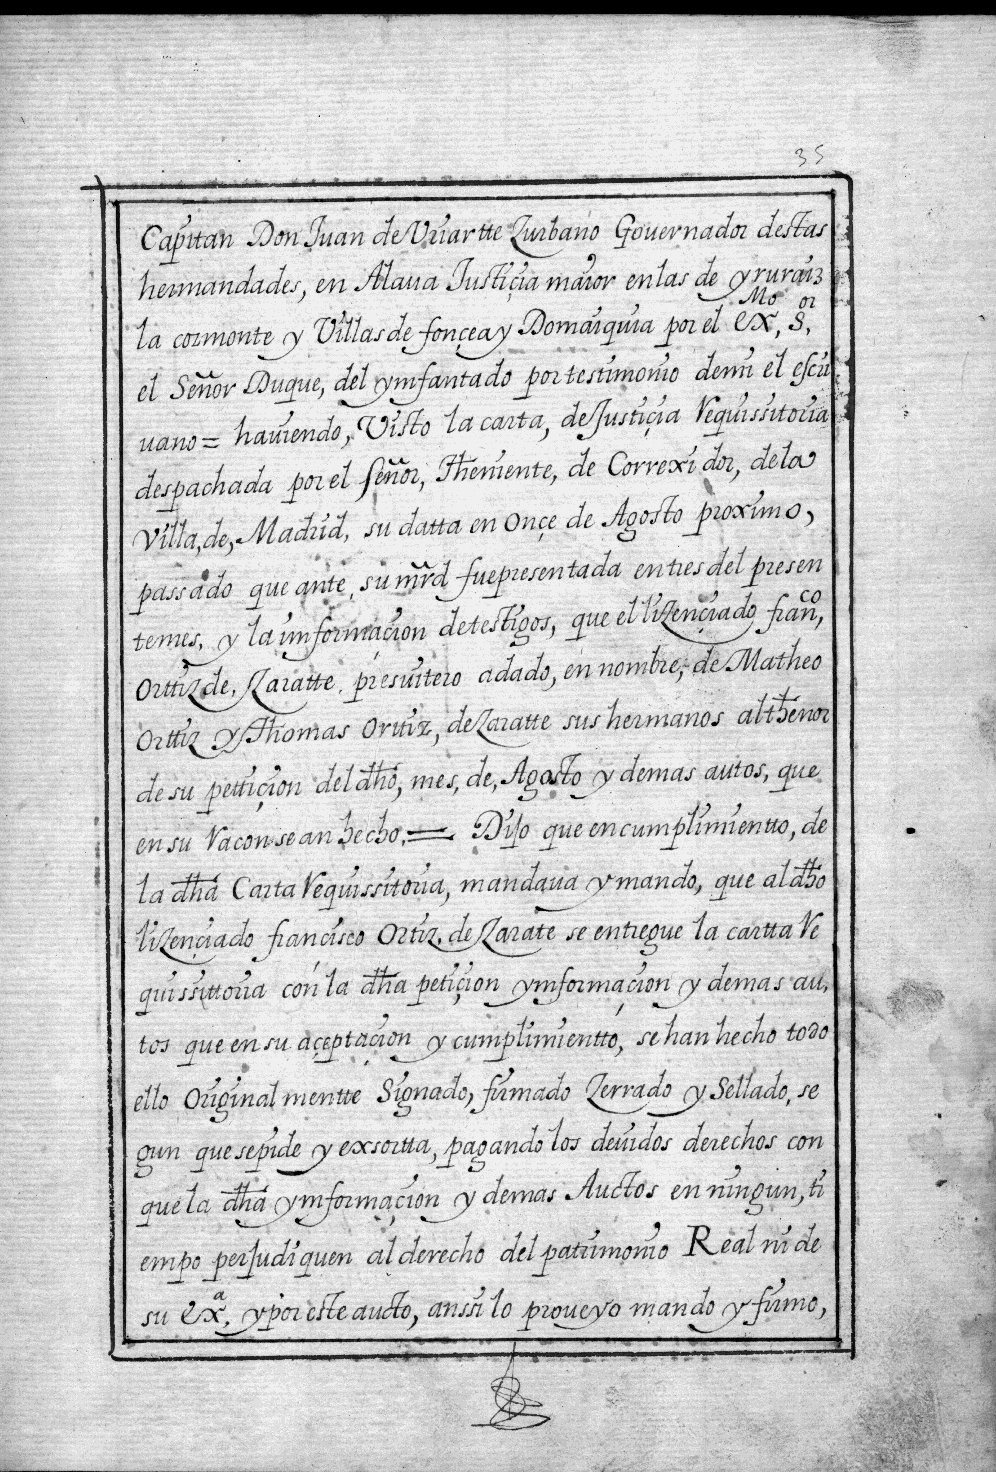 35
Capitan Don Juan de Vriartte Zurbano Gouernador destas
hermandades, en Alaua Justiçia maior en las de yruraiz
la cormonte y Villas de fonçea y Domaiquia por el exᵐᵒ, Sᵒʳ,
el Señor Duque, del ymfantado por testimonio de mi el escri
uano = hauiendo, Visto la carta, de Justiçia Requissitoria
despachada por el Señor, Theniente, de Correxidor, de la
Villa, de, Madrid, su datta en onçe de Agosto proximo,
passado que ante, su mrd fue presentada en tres del presen
te mes, y la imformaçion de testigos, que el lizençiado franᶜᵒ,
Orttiz de, Zaratte, presuitero a dado, en nombre, de Matheo
Orttiz y Thomas Orttiz, de Zaratte sus hermanos al thenor
de su pettiçion del dho, mes, de, Agosto y demas autos, que
en su Raçon se an hecho, = Dijo que en cumplimientto, de
la dha Carta Requissitoria, mandaua y mando, que al dho
lizençiado francisco Ortiz, de Zarate se entregue la cartta Re
quissittoria con la dha petiçion ymformaçion y demas au,
tos que en su açeptaçion y cumplimientto, se han hecho todo
ello Original mentte Signado, firmado Zerrado y Sellado, se
gun que se pide y exsortta, pagando los deuidos derechos con
que la dha ymformaçion y demas Auctos en ningun, ti
empo perjudiquen al derecho del patrimonio Real ni de
su exᵃ, y por este aucto, anssi lo proueyo mando y firmo,